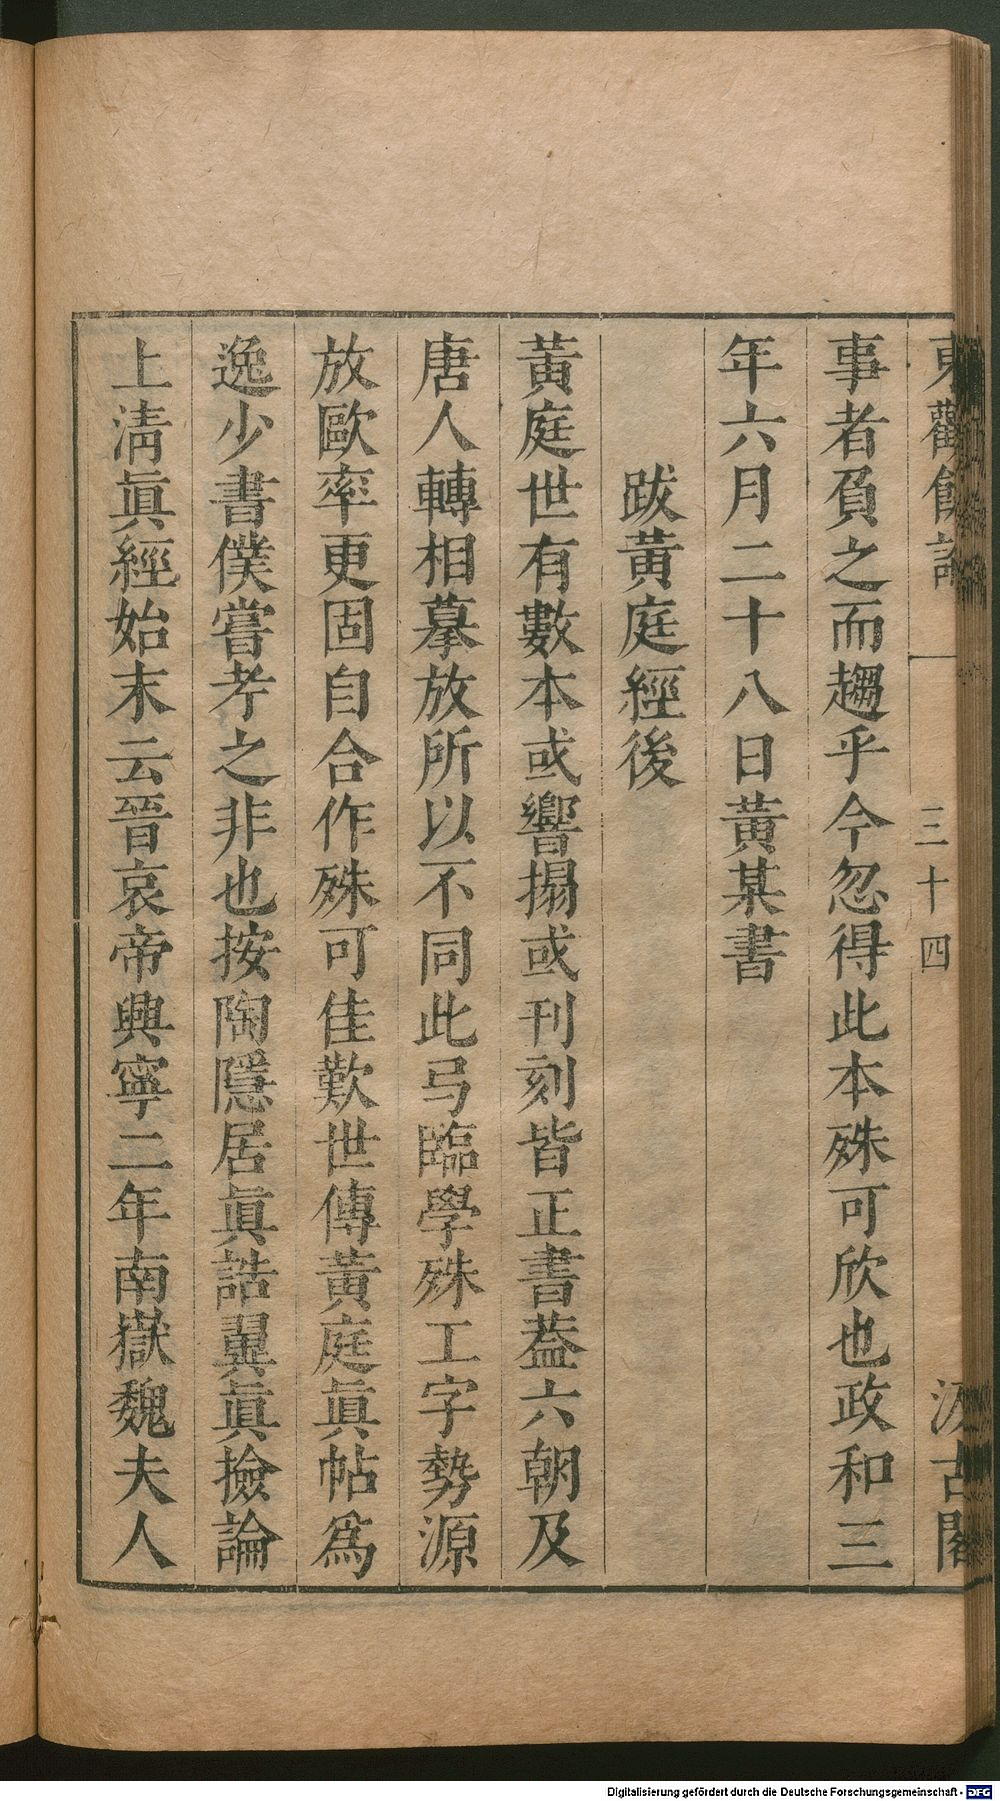 東觀餘論
三十四
汲古閣
事者負之而趨乎今忽得此本殊可欣也政和三
年六月二十八日黃某書
跋黃庭經後
黃庭世有數本或響搨或刊刻皆正書葢六朝及
唐人轉相摹放所以不同此弓臨學殊工字勢源
放歐率更固自合作殊可佳歎世傳黃庭眞帖爲
逸少書僕嘗考之非也按陶隱居眞誥翼眞撿論
上淸眞經始末云晉哀帝興寧二年南嶽魏夫人
Digitalisierung gefördert durch die Deutsche Forschungsgemeinschaft - DFG